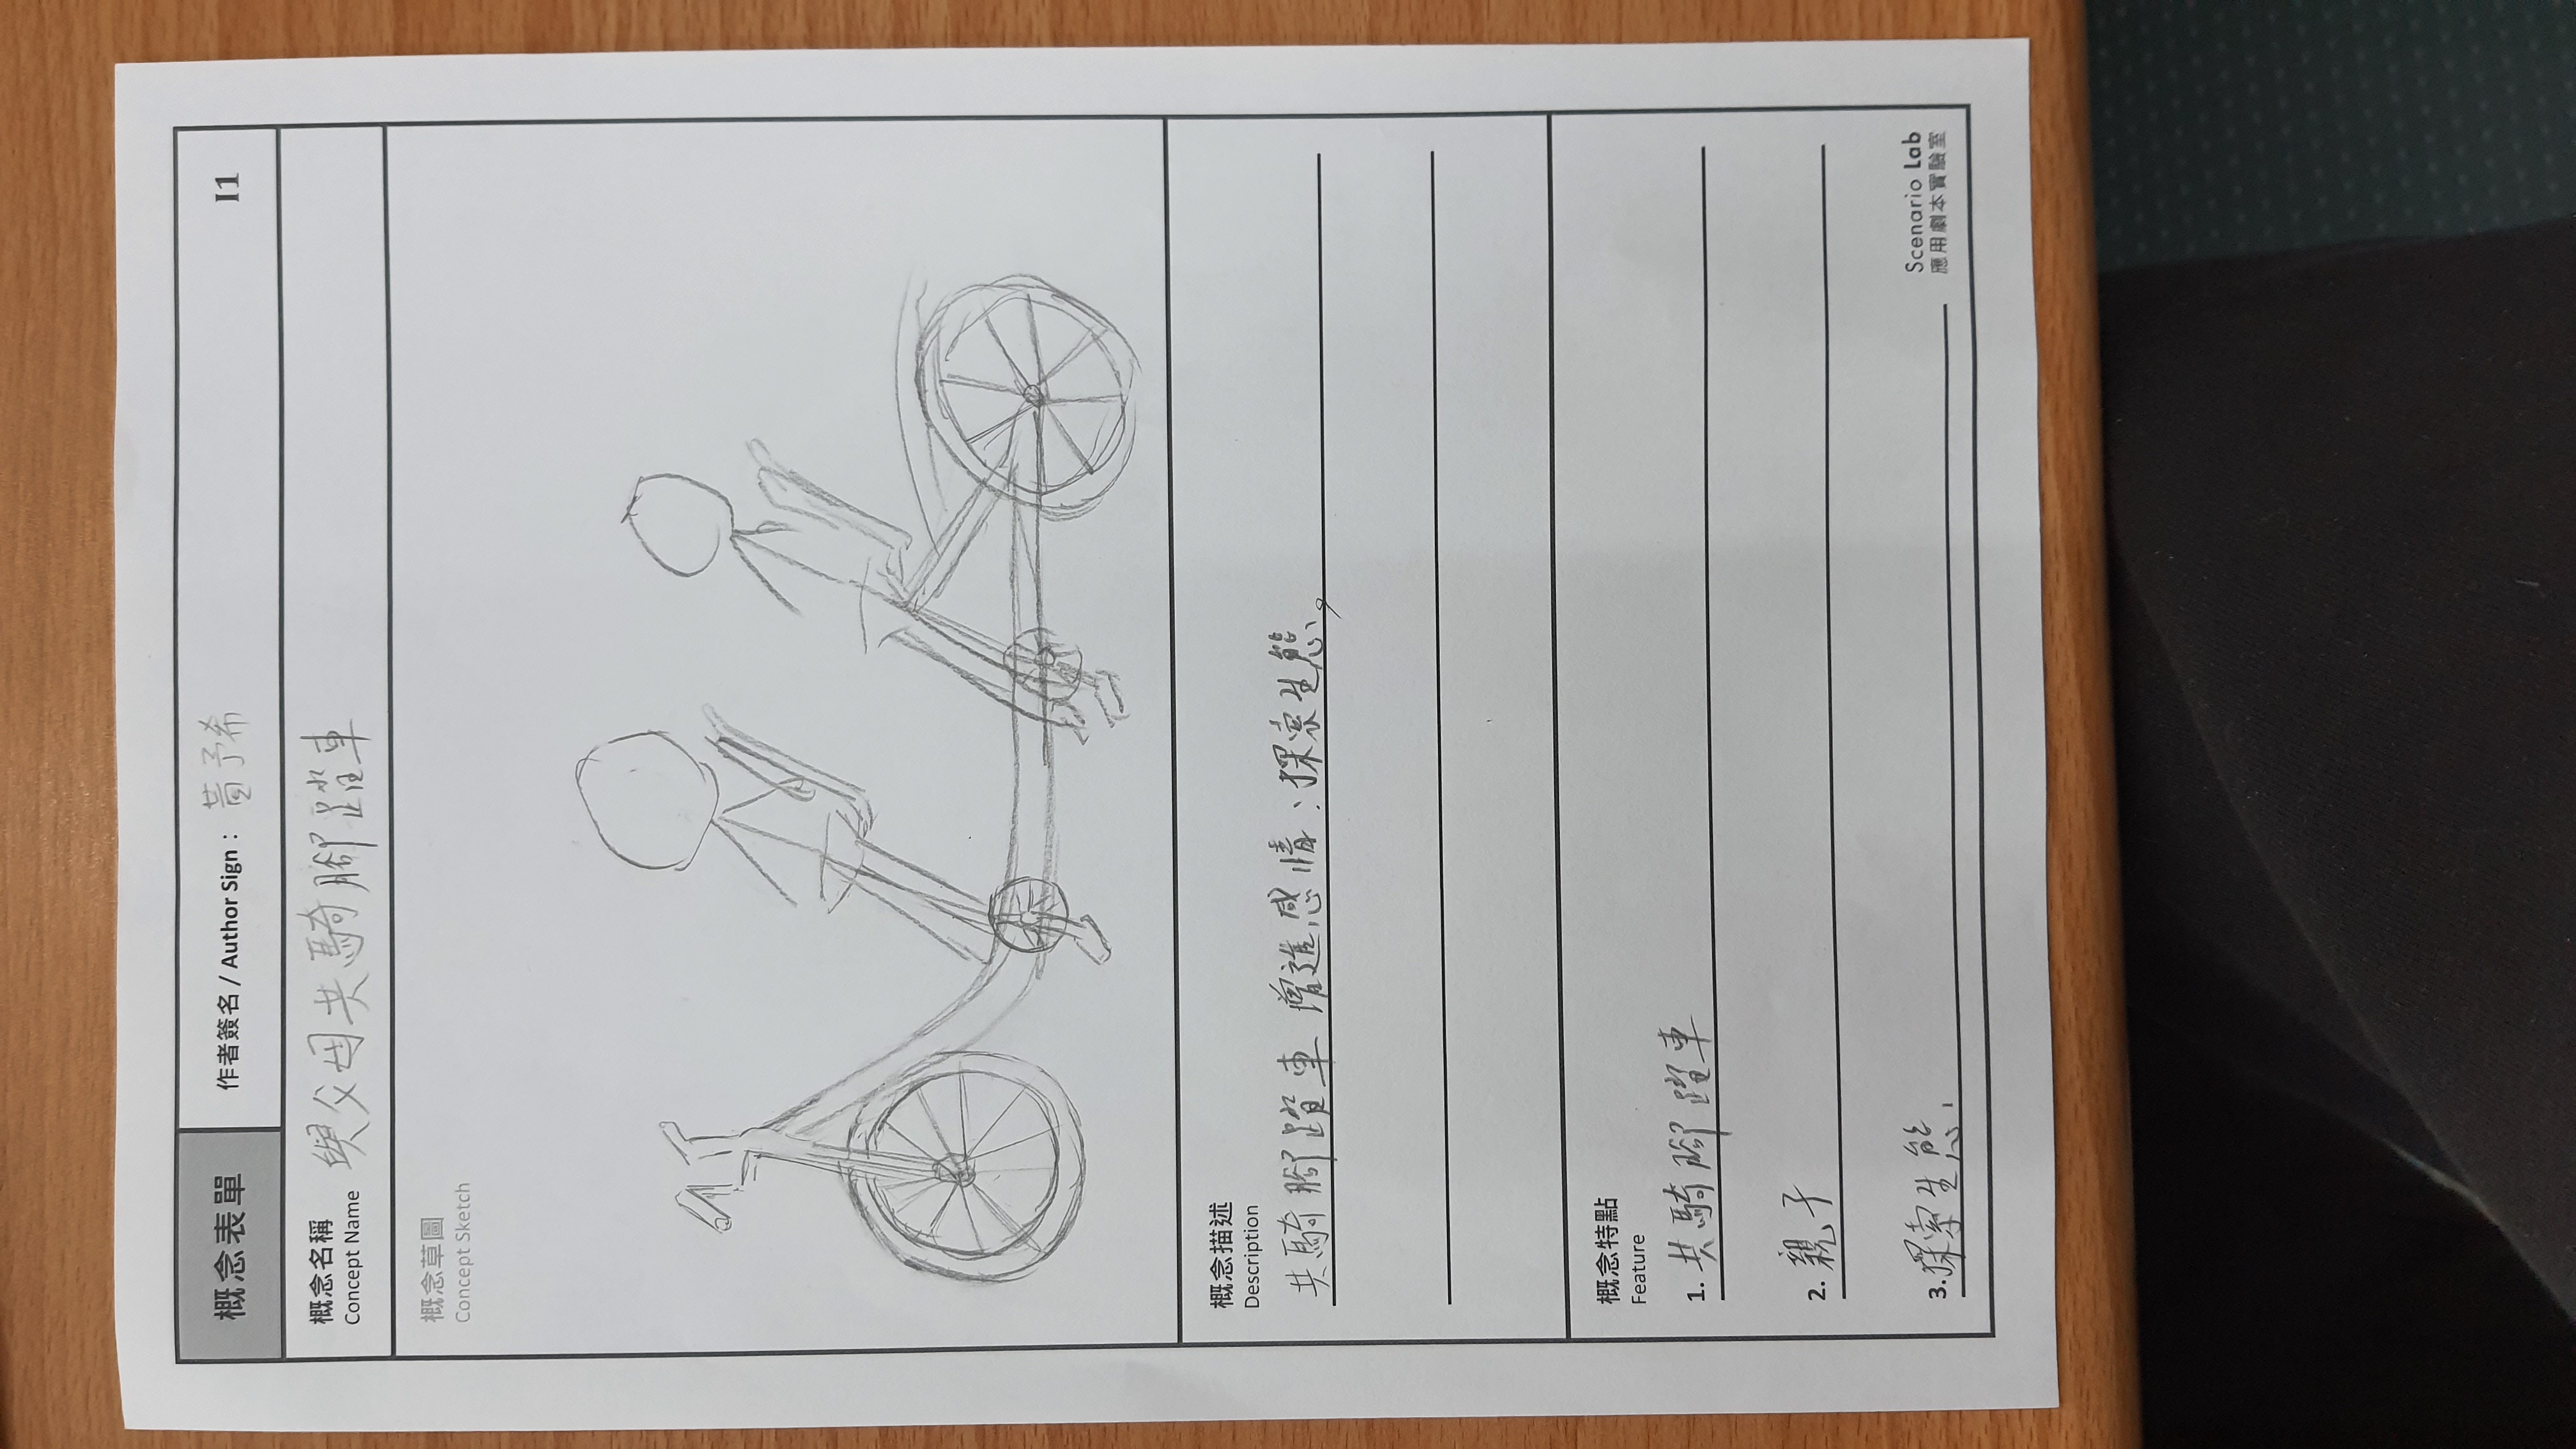 概念表單
作者簽名 / Author Sign： 黃予希
I1
概念名稱
Concept Name
與父母共騎腳踏車
概念草圖
Concept Sketch
概念描述
Description
共騎腳踏車 增進感情；探索生態，
概念特點
Feature
1. 共騎腳踏車
2. 親子
3. 探索生態
Scenario Lab
應用劇本實驗室